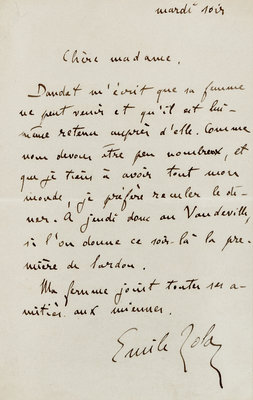 mardi soir
Chère madame,
Daudet m'écrit que sa femme
ne peut venir et qu'il est lui-
même retenu auprès d'elle. Comme
nous devons être peu nombreux, et
que je tiens à avoir tout mon
monde, je préfère reculer le dî-
ner. A jeudi donc au Vaudeville,
si l'on donne ce soir-là la pre-
mière de Sardou.
Ma femme joint toutes ses a-
mitiés aux miennes.
Emile Zola